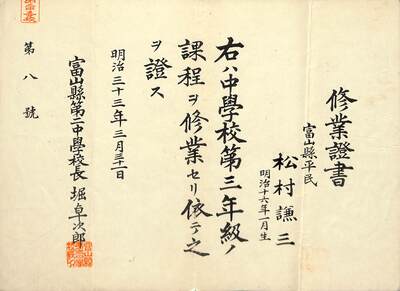 修業證書
富山縣平民
松村謙三
明治十六年一月生
右ハ中學校第三年級ノ
課程ヲ修業セリ依テ之
ヲ證ス
明治三十三年三月三十一日
富山縣第二中學校長 堀卓次郎
第八號